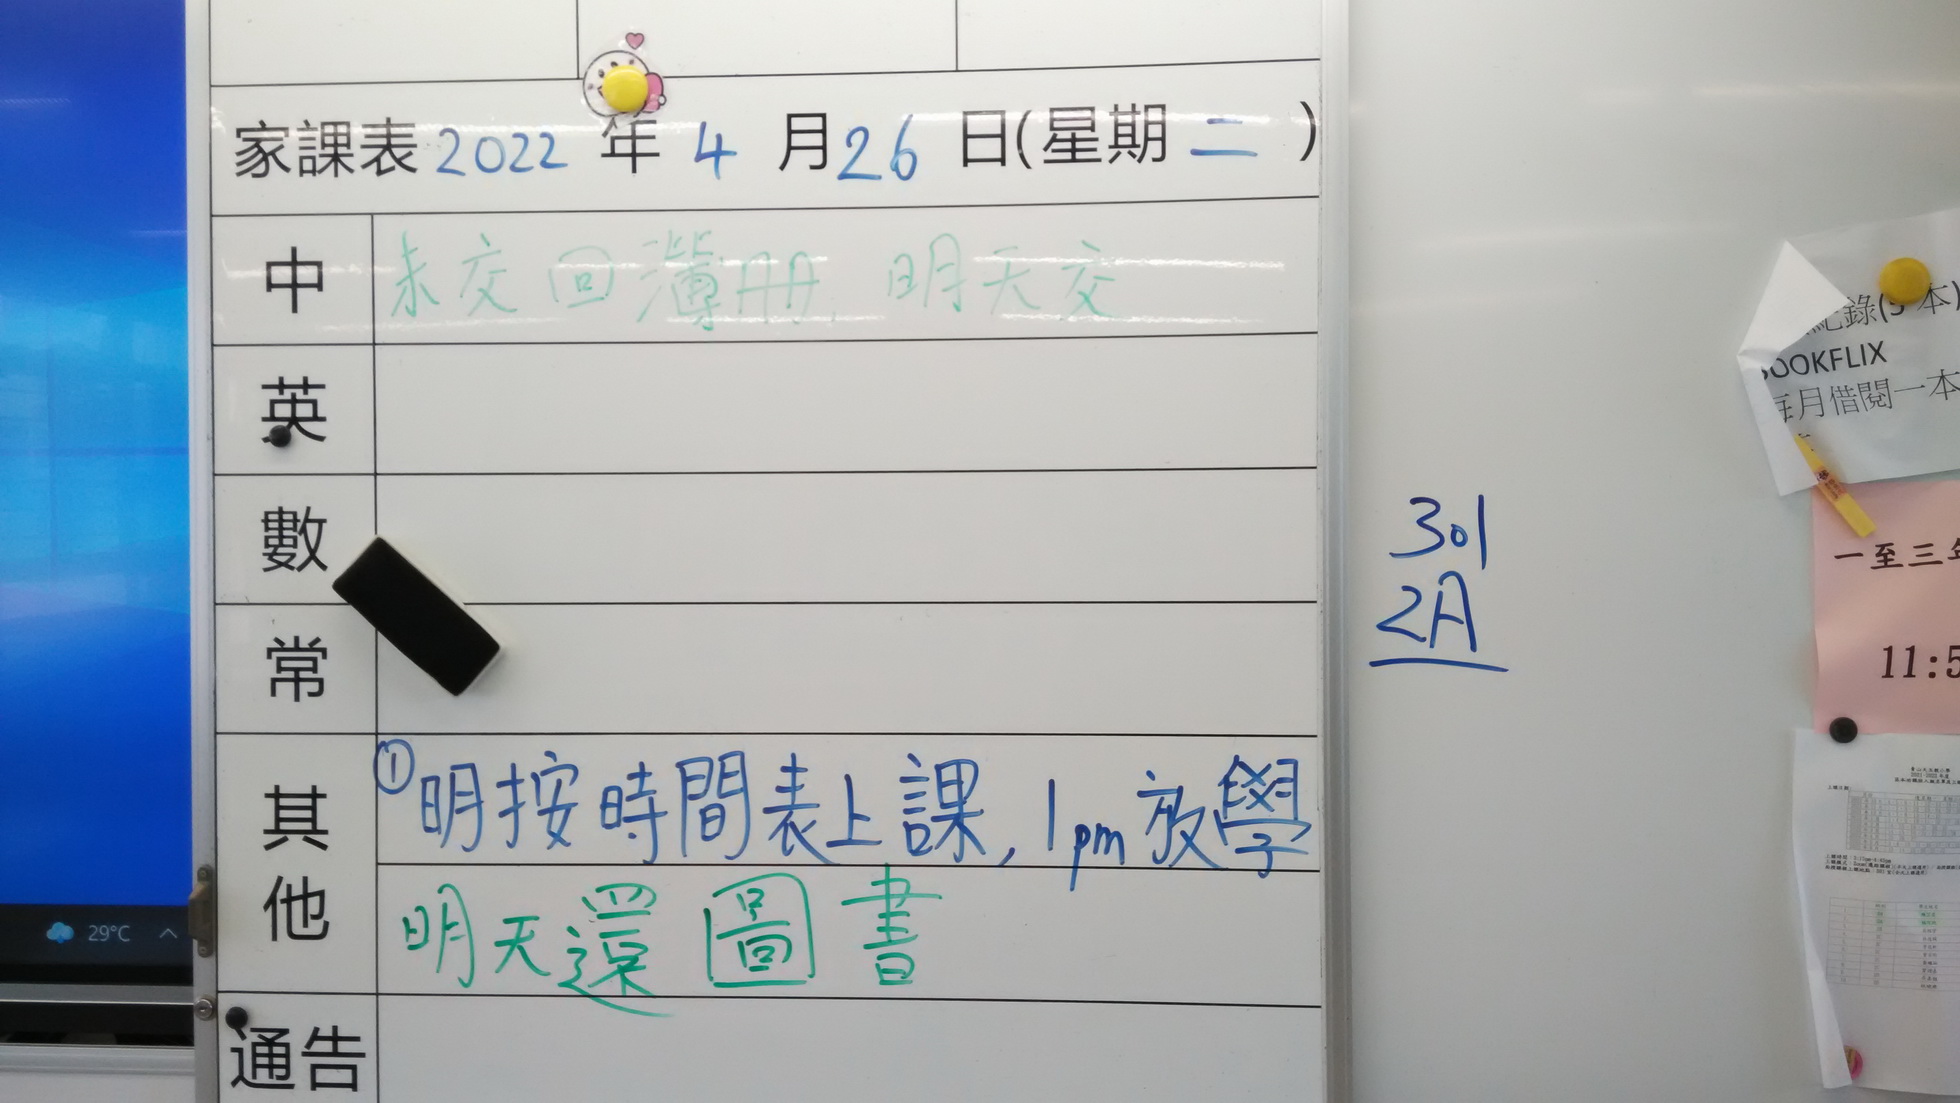 家課表 2022 年 4 月 26 日(星期 二 )
中 未交回簿冊, 明天交
英
數
常
其他
① 明按時間表上課, 1pm 放學
明天還圖書
通告
29°C
301
2A
紀錄(5 本)
BOOKFLIX
每月借閱一本
一至三年
11:5